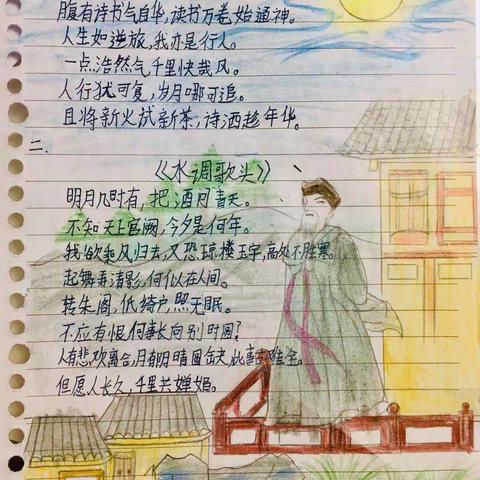 腹有诗书气自华，读书万卷始通神。
人生如逆旅，我亦是行人。
一点浩然气千里快哉风。
人行犹可复，岁月哪可追。
且将新火试新茶，诗酒趁年华。
二、
《水调歌头》
明月几时有，把酒问青天。
不知天上宫阙，今夕是何年。
我欲乘风归去，又恐琼楼玉宇，高处不胜寒。
起舞弄清影，何似在人间。
转朱阁，低绮户，照无眠。
不应有恨何事长向别时圆？
人有悲欢离合，月有阴晴圆缺，此事古难全。
但愿人长久，千里共婵娟。